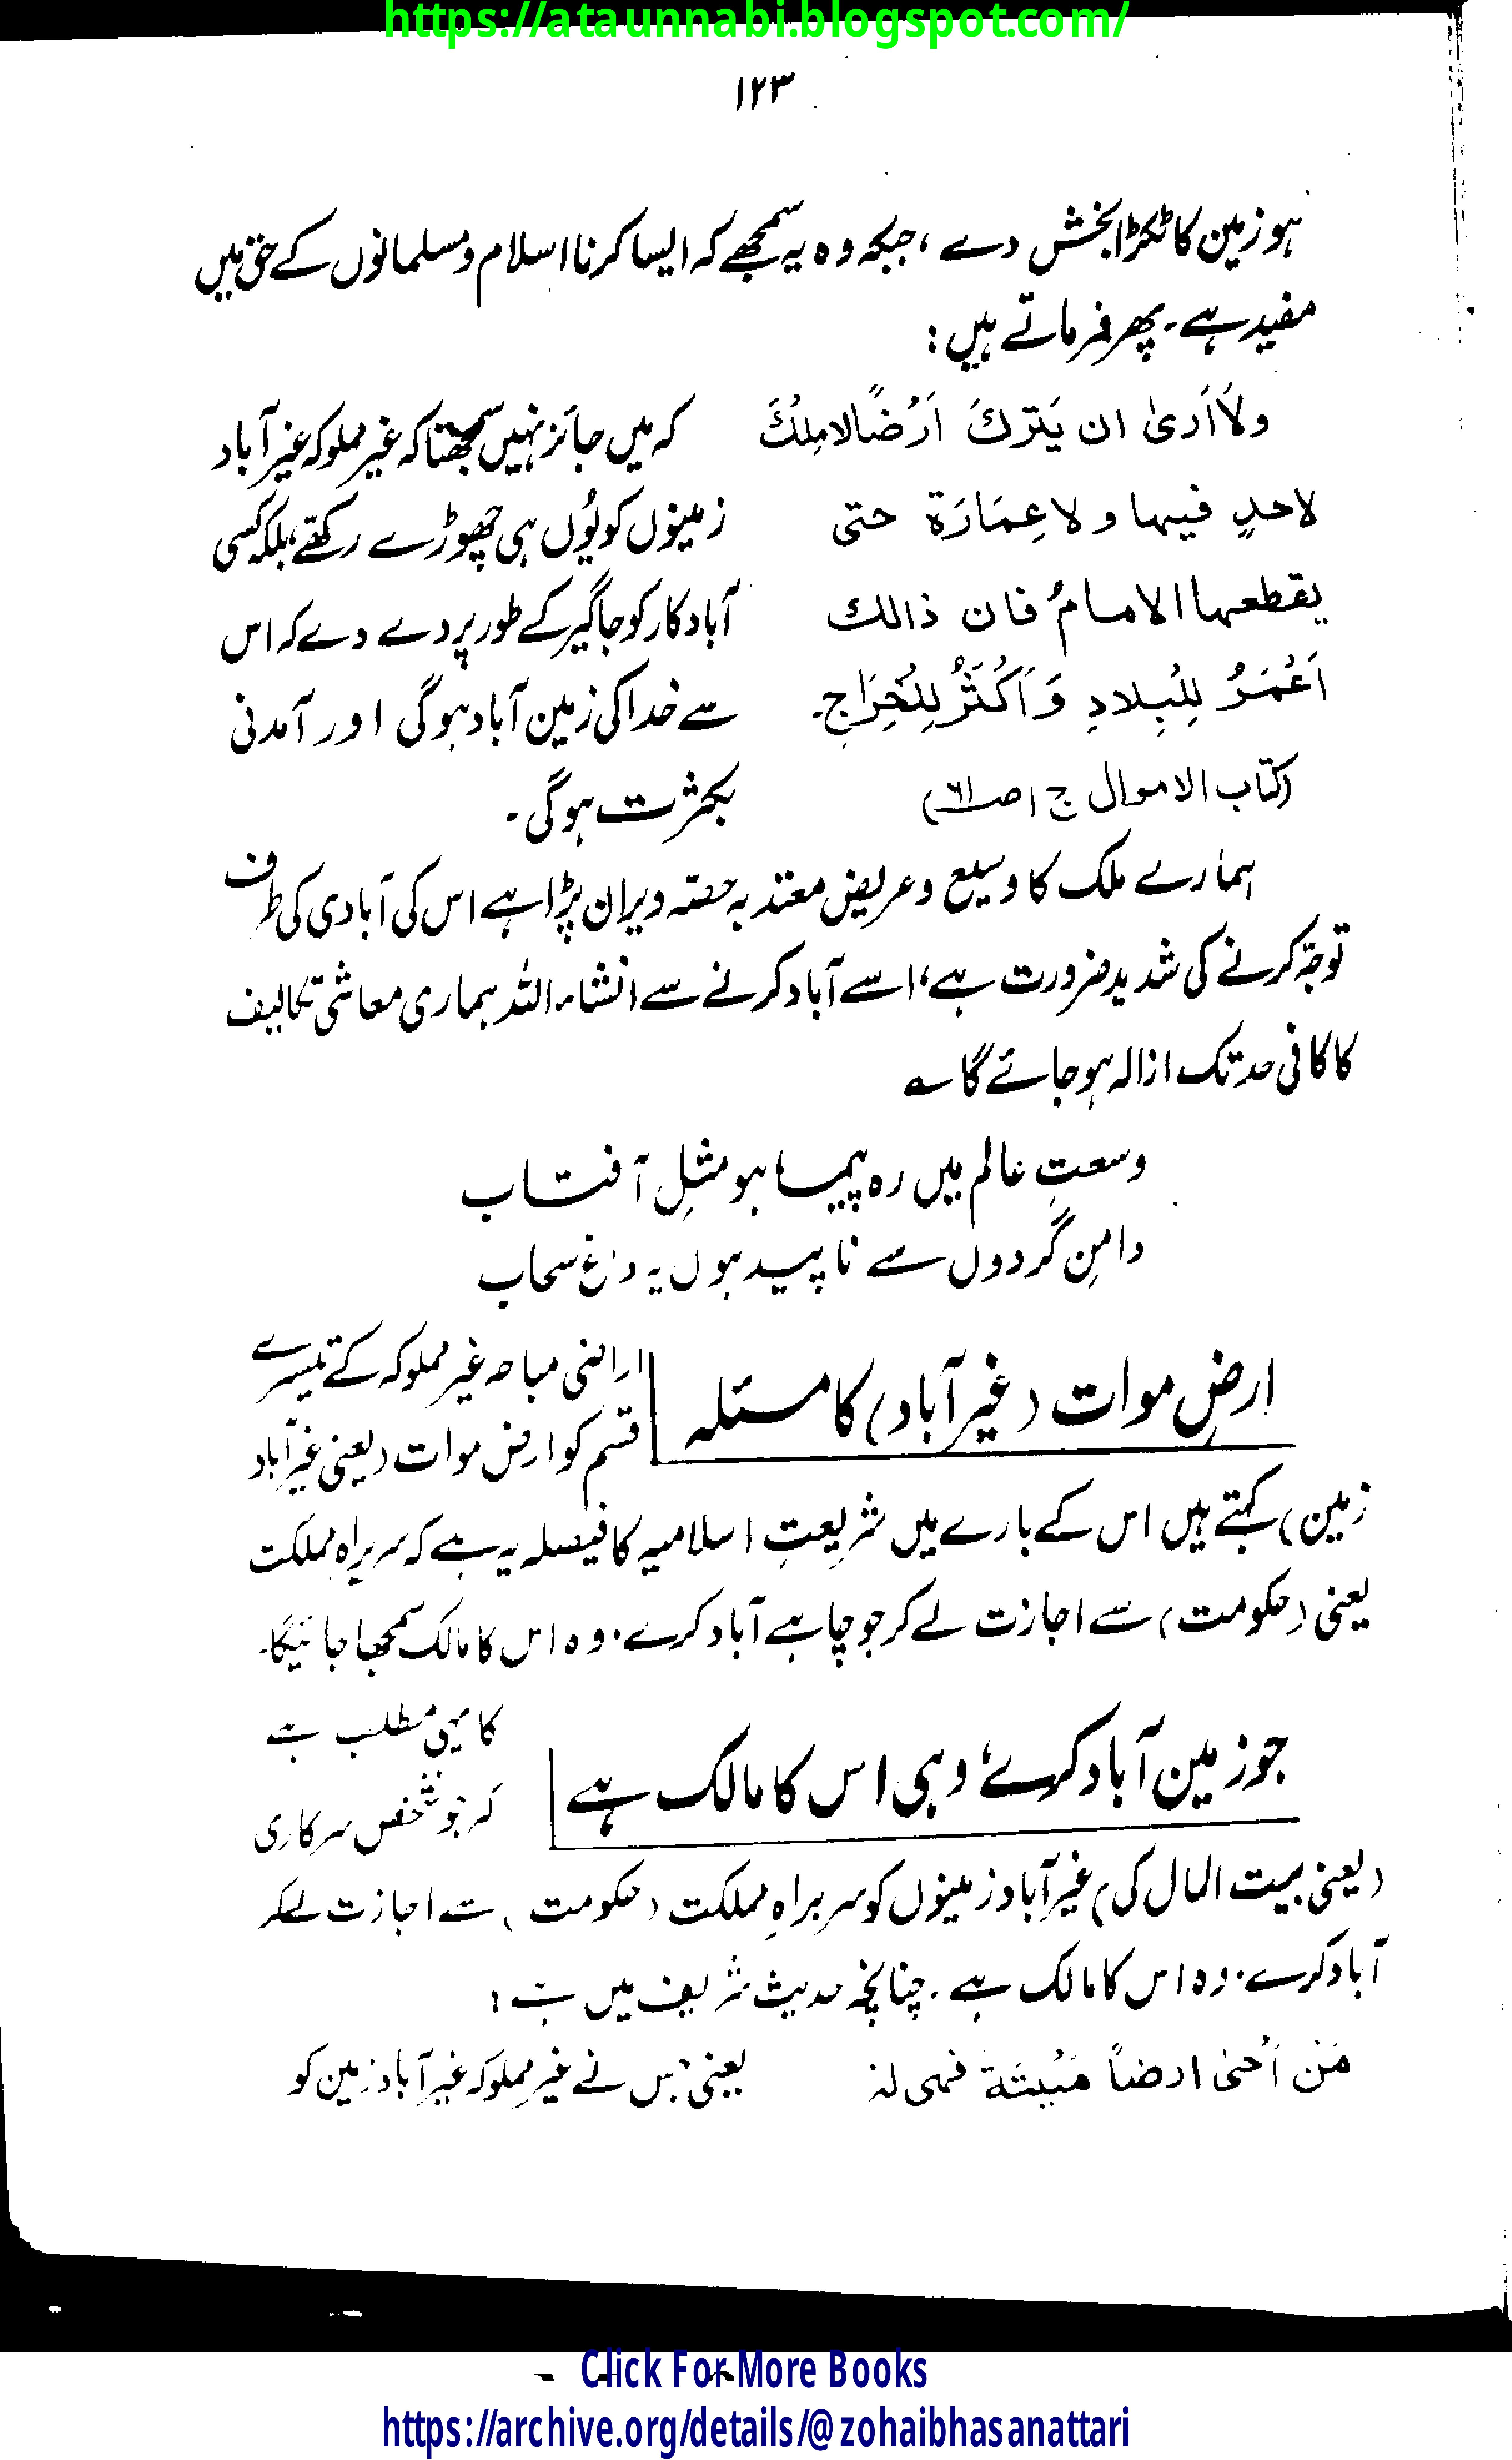 https://ataunnabi.blogspot.com/
۱۲۳
ہو زمین کا ٹکڑا بخش دے ، جبکہ وہ یہ سمجھے کہ ایسا کرنا اسلام و مسلمانوں کے حق میں
مفید ہے۔ پھر فرماتے ہیں :
ولَا اَرىٰ ان يَترُكَ اَرْضًا لا مِلْكَ
لاحدٍ فيها و لا عِمَارَة حتى
يقطعها الامامُ فان ذالك
اَعْمَرُ لِلْبِلادِ وَ اَكْثَرُ لِلْخِرَاج۔
(کتاب الاموال ج ۱ ص ۶۱)
کہ میں جائز نہیں سمجھتا کہ غیر مملوکہ غیر آباد
زمینوں کو یُوں ہی چھوڑے رکھے، بلکہ کسی
آباد کار کو جاگیر کے طور پر دے دے کہ اس
سے خدا کی زمین آباد ہوگی اور آمدنی
بکثرت ہوگی ۔
ہمارے ملک کا وسیع و عریض معتد بہ حصّہ ویران پڑا ہے اس کی آبادی کی طرف
توجّہ کرنے کی شدید ضرورت ہے، اسے آباد کرنے سے انشاء اللہ ہماری معاشی تکالیف
کا کافی حد تک ازالہ ہو جائے گا ؎
وسعتِ عالم میں رہ پیما ہو مثلِ آفتاب
دامنِ گردوں سے ناپید ہوں یہ داغ سحاب
ارضِ موات (غیر آباد) کا مسئلہ
اراضی مباحہ غیر مملوکہ کے تیسرے
قسم کو ارض موات (یعنی غیر آباد
زمین) کہتے ہیں اس کے بارے میں شریعتِ اسلامیہ کا فیصلہ یہ ہے کہ سربراہِ مملکت
یعنی (حکومت) سے اجازت لے کر جو چاہے آباد کرے۔ وہ اس کا مالک سمجھا جائیگا۔
جو زمین آباد کرے، وہی اس کا مالک ہے
کا یہی مطلب ہے
کہ جو شخص سرکاری
(یعنی بیت المال کی) غیر آباد زمینوں کو سربراہِ مملکت (حکومت) سے اجازت لے کر
آباد کرے۔ وہ اس کا مالک ہے ۔ چنانچہ حدیث شریف میں ہے :
مَنْ اَحْیٰ ارضاً مَيْتَةً فهى لهٗ
یعنی جس نے غیر مملوکہ غیر آباد زمین کو
Click For More Books
https://archive.org/details/@zohaibhasanattari